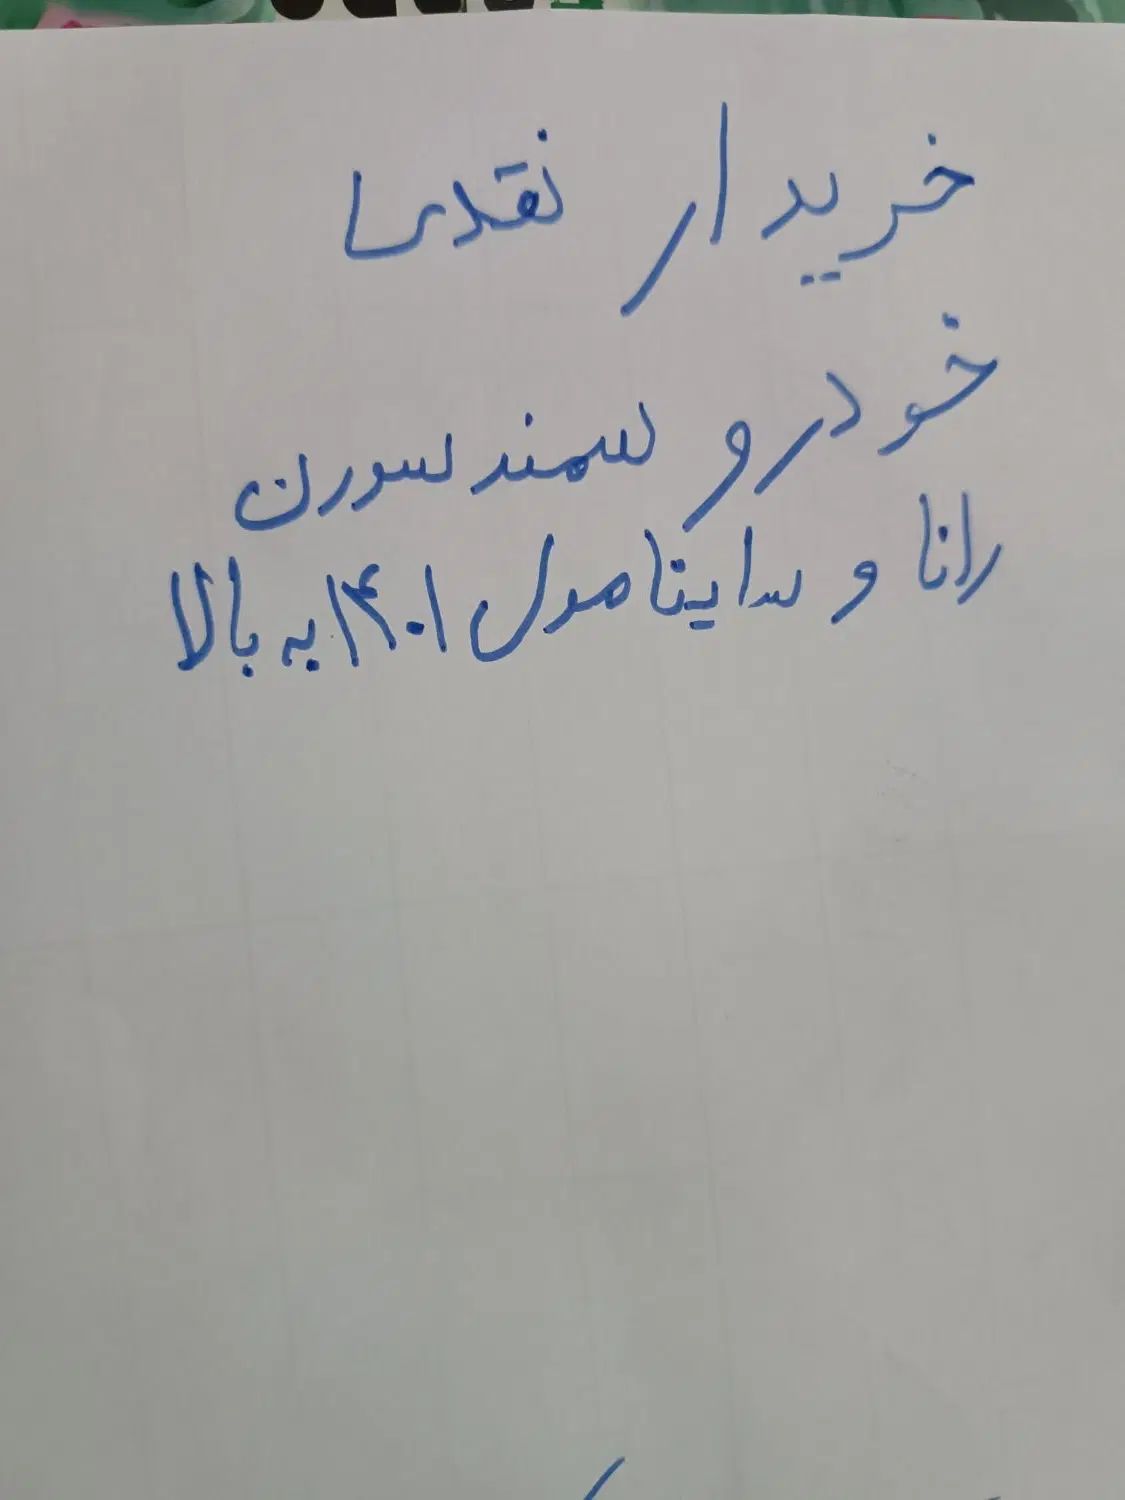 خریدار نقدی
خودرو سمند سورن
رانا و ساینا مدل ۱۴۰۱ به بالا